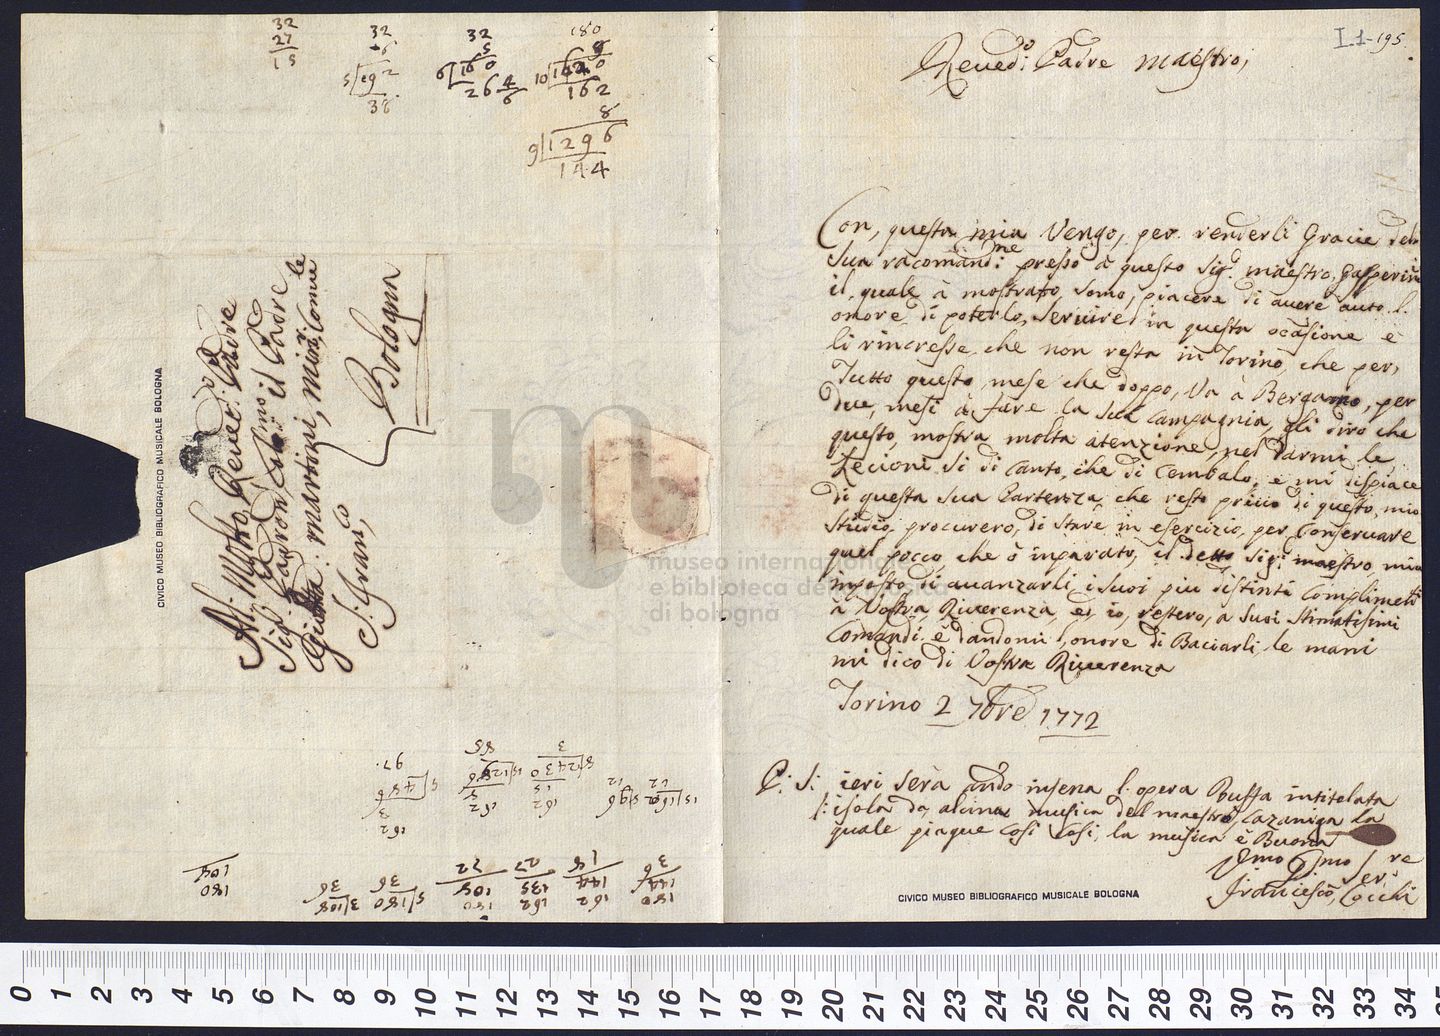 I.1-195.
Reved:o Padre Maestro,
Con, questa mia Vengo, per. renderli Gracie del
sua racomandi:me presso à questo Sig:r maestro, Gasperini
il, quale à mostrato, somo, piacere di avere auto. l.
onore di poterlo, servire, in questa ocasione è
li rincresse, che non resta in Torino, che per,
Tutto questo, mese che doppo, Va à Bergamo, per
due, mesi à fare la sua Campagnia, gli dirò che
questo, mostra molta atenzione, nel darmi le
Lecioni. Si di Canto, che di Cembalo, e mi dispiace
di questa sua Partenza, che resto privo di questo, mio
studio, procurero, di stare in esercizio, per Conservare
quel pocco, che ò inparato, il detto Sig:r maestro, mia
inposto di avanzarli, i suoi piu distinti Complimeti
à Vostra, Riverenza, ed io, restero, a suoi stimatisimi
Comandi. è dandomi l,onore di Baciarli, le mani
mi dico di Vostra Riverenza
Torino 2 7bre 1772
P: S: ieri sera ando insena l,opera Buffa intitolata
l:isola da alcina musica del maestro, Cazaniga la
quale piaque Cosi Cosi, la musica è Buona
Vmo Ser:re
Francesco, Cocchi
Al: Molto, Reved:o Padre
Sig:r Padron, il Padre
Giamba: martini, min:ri Convle
S: Franco,
Bologna
32
27
15
32
6
5/192
38
32
5
6/160
26 4/6
180
9
10/1620
162
8
9/1296
144
97
5/486
3
162
3
5/2430
15
162
180
104
36
3/108
36
5/180
72
108
180
27
135
162
18
144
162
36
144
180
CIVICO MUSEO BIBLIOGRAFICO MUSICALE BOLOGNA
CIVICO MUSEO BIBLIOGRAFICO MUSICALE BOLOGNA
museo internazionale
e biblioteca della musica
di bologna
0 1 2 3 4 5 6 7 8 9 10 11 12 13 14 15 16 17 18 19 20 21 22 23 24 25 26 27 28 29 30 31 32 33 34 35